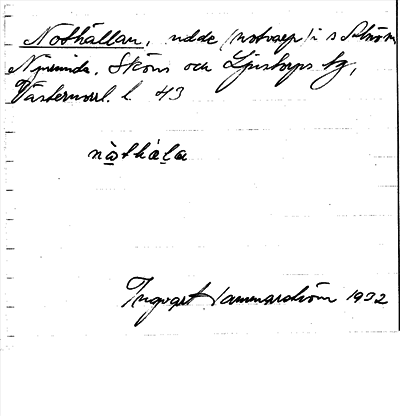 Nothällan, udde (notvarp) i s
Skön och Ljustorps
Västernorrl. l. 43
nòthäla
Ingvart Hammarström 1932